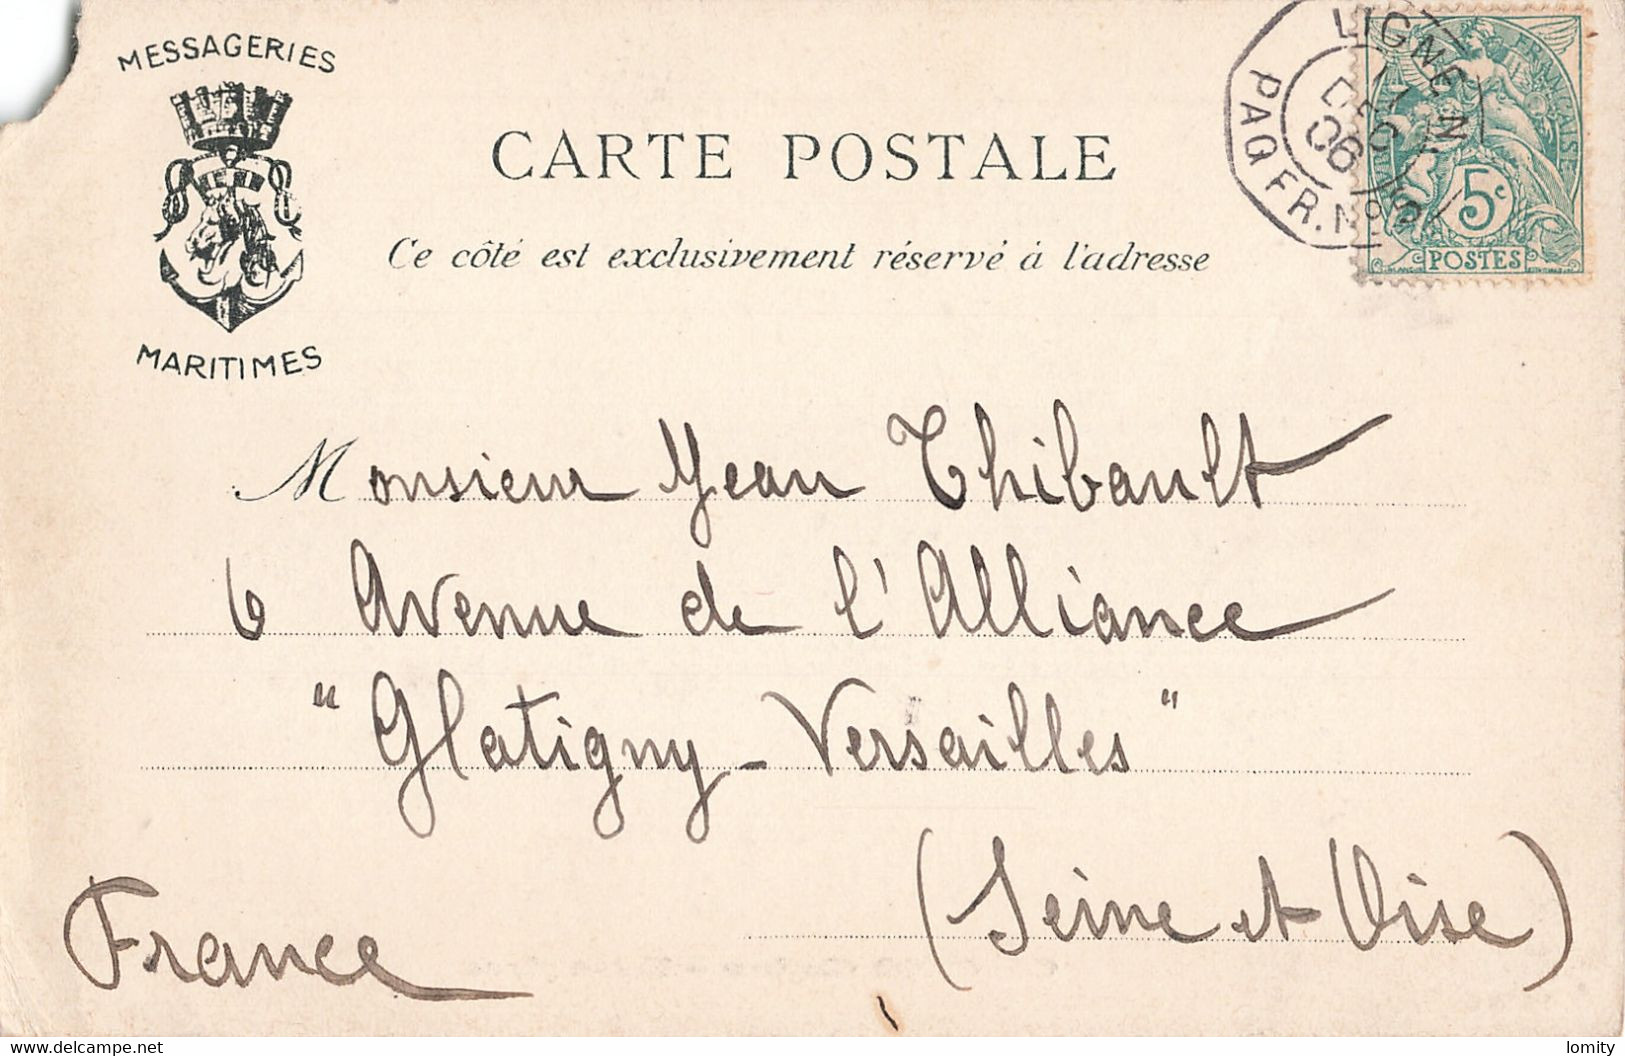 MESSAGERIES
MARITIMES
CARTE POSTALE
Ce côté est exclusivement réservé à l'adresse
LIGNE N
PAQ FR. No
DEC
06
FRANÇAISE
5c
POSTES
Monsieur Jean Thibault
6 Avenue de l'Alliance
"Glatigny - Versailles"
(Seine et Oise)
France
delcampe.net
lomity